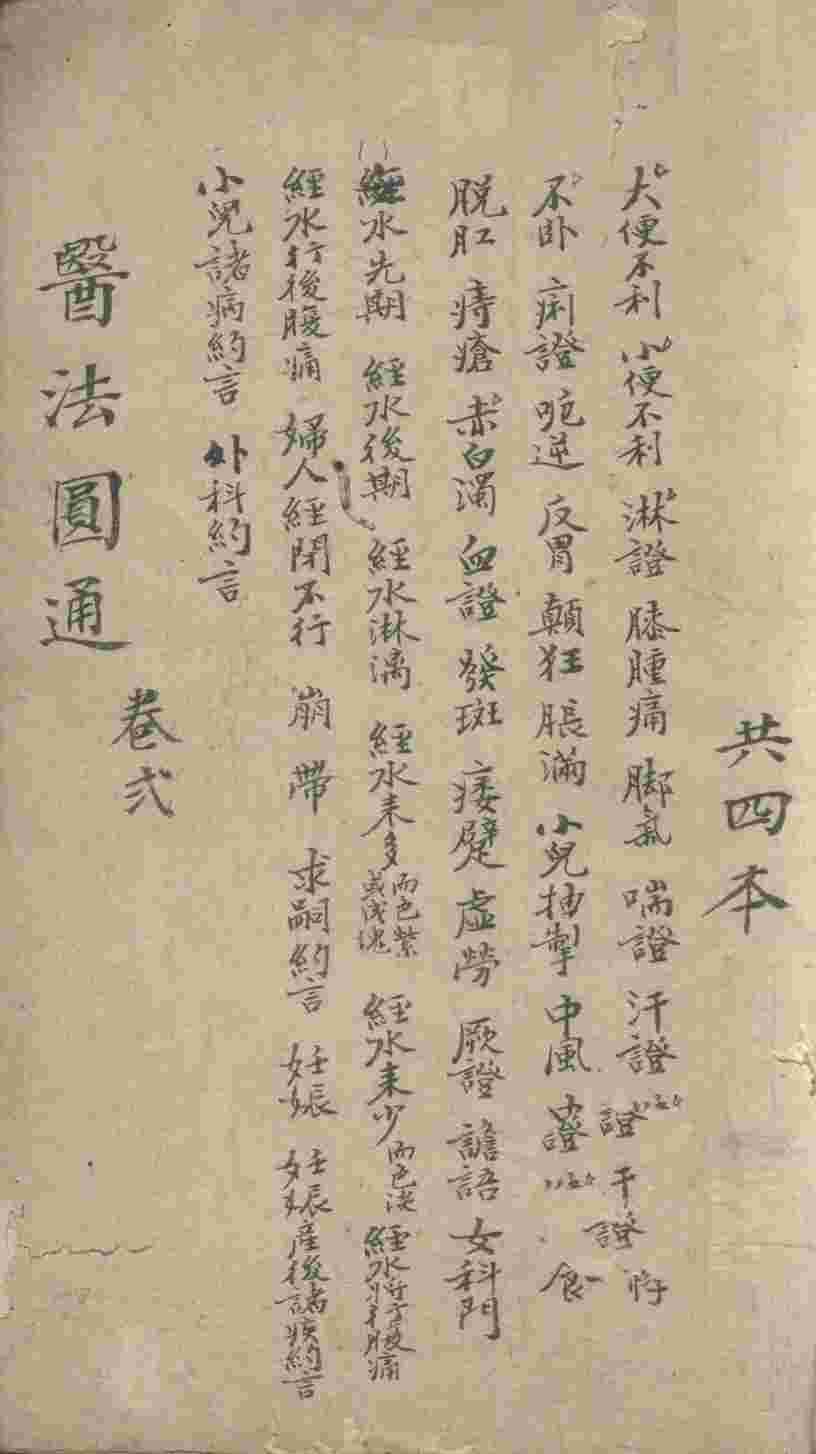 共四本
大便不利 小便不利 淋證 膝腫痛 脚氣 喘證 汗證
不卧 痢證 呃逆 反胃 顛狂 脹滿 小兒抽掣 中風 證 食
脱肛 痔瘡 赤白濁 血證 發斑 痿躄 虛勞 厥證 譫語 女科門
經水先期 經水後期 經水淋漓 經水來多而色紫或成塊 經水來少而色淡 經水將行腹痛
經水行後腹痛 婦人經閉不行 崩 帶 求嗣約言 妊娠 妊娠產後諸疾約言
小兒諸病約言 外科約言
醫法圓通
卷弍